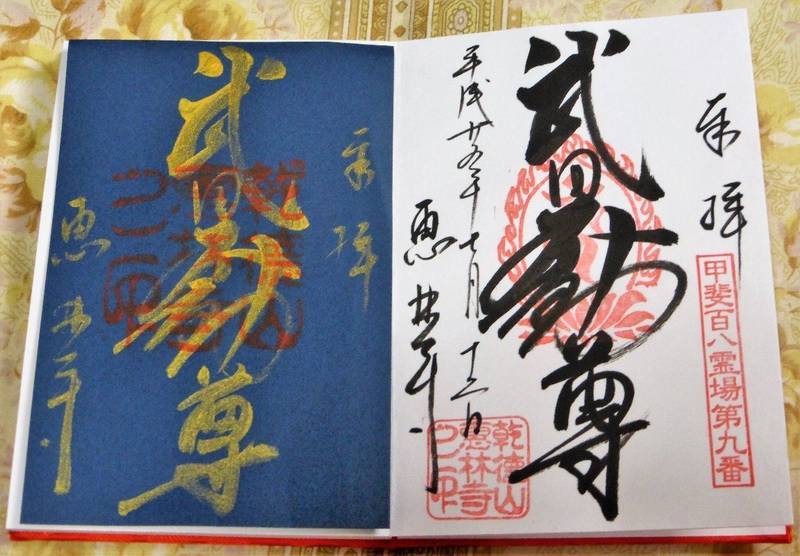 奉拝
甲斐百八霊場第九番
武田不動尊
平成廿五年七月
恵林寺
乾徳山
恵林寺
之印
奉拝
武田不動尊
恵林寺
乾徳山
恵林寺
之印